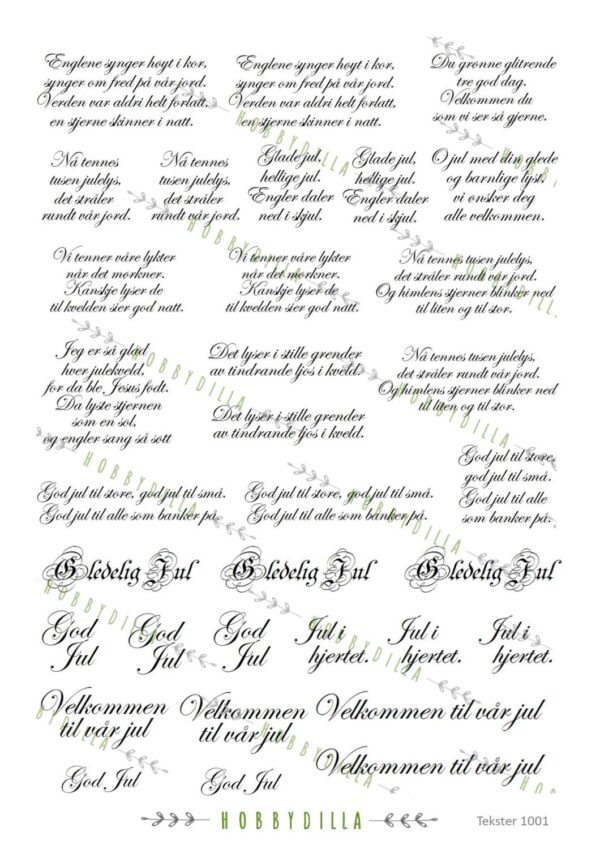 Englene synger høyt i kor,
synger om fred på vår jord.
Verden var aldri helt forlatt,
en stjerne skinner i natt.
Englene synger høyt i kor,
synger om fred på vår jord.
Verden var aldri helt forlatt,
en stjerne skinner i natt.
Du grønne glitrende
tre god dag.
Velkommen du
som vi ser så gjerne.
Nå tennes
tusen julelys,
det stråler
rundt vår jord.
Nå tennes
tusen julelys,
det stråler
rundt vår jord.
Glade jul,
hellige jul.
Engler daler
ned i skjul.
Glade jul,
hellige jul.
Engler daler
ned i skjul.
O jul med din glede
og barnlige lyst,
vi ønsker deg
alle velkommen.
Vi tenner våre lykter
når det mørkner.
Kanskje lyser de
til kvelden sier god natt.
Vi tenner våre lykter
når det mørkner.
Kanskje lyser de
til kvelden sier god natt.
Nå tennes tusen julelys,
det stråler rundt vår jord.
Og himlens stjerner blinker ned
til liten og til stor.
Jeg er så glad
hver julekveld,
for da ble Jesus født.
Da lyste stjernen
som en sol,
og engler sang så søtt
Det lyser i stille grender
av tindrande ljos i kveld.
Det lyser i stille grender
av tindrande ljos i kveld.
Nå tennes tusen julelys,
det stråler rundt vår jord.
Og himlens stjerner blinker ned
til liten og til stor.
God jul til store,
god jul til små.
God jul til alle
som banker på.
God jul til store, god jul til små.
God jul til alle som banker på.
God jul til store, god jul til små.
God jul til alle som banker på.
Gledelig Jul
Gledelig Jul
Gledelig Jul
God
Jul
God
Jul
God
Jul
Jul i
hjertet.
Jul i
hjertet.
Jul i
hjertet.
Velkommen
til vår jul
Velkommen
til vår jul
Velkommen til vår jul
Velkommen til vår jul
God Jul
God Jul
HOBBYDILLA
Tekster 1001